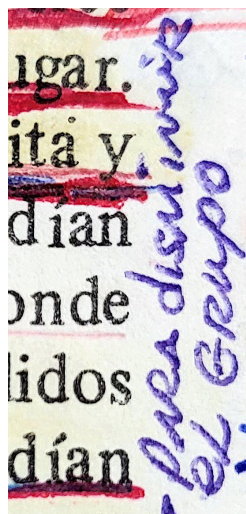 ugar.
ita y
dían
onde
lidos
dían
- para disuimir
el Grupo